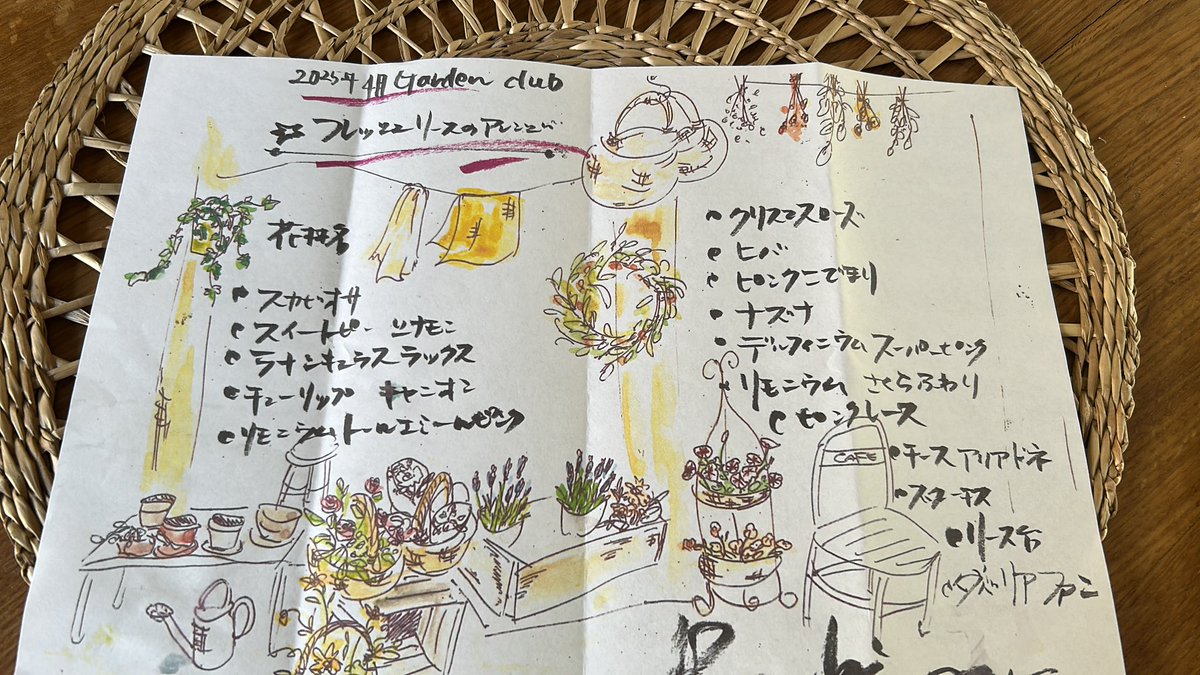 2025年 4月 Garden club
フレッシュリースのアレンジ
花材名
・スカビオサ
・スイートピー シナモン
・ラナンキュラスラックス
・チューリップ キャニオン
・リモニウム トールエミールピンク
・クリスマスローズ
・ヒバ
・ピンクコデマリ
・ナズナ
・デルフィニウム スーパーピンク
・リモニウム さくらふわり
・ピンクレース
・チース アリアドネ
・スターチス
・リース台
CAFE